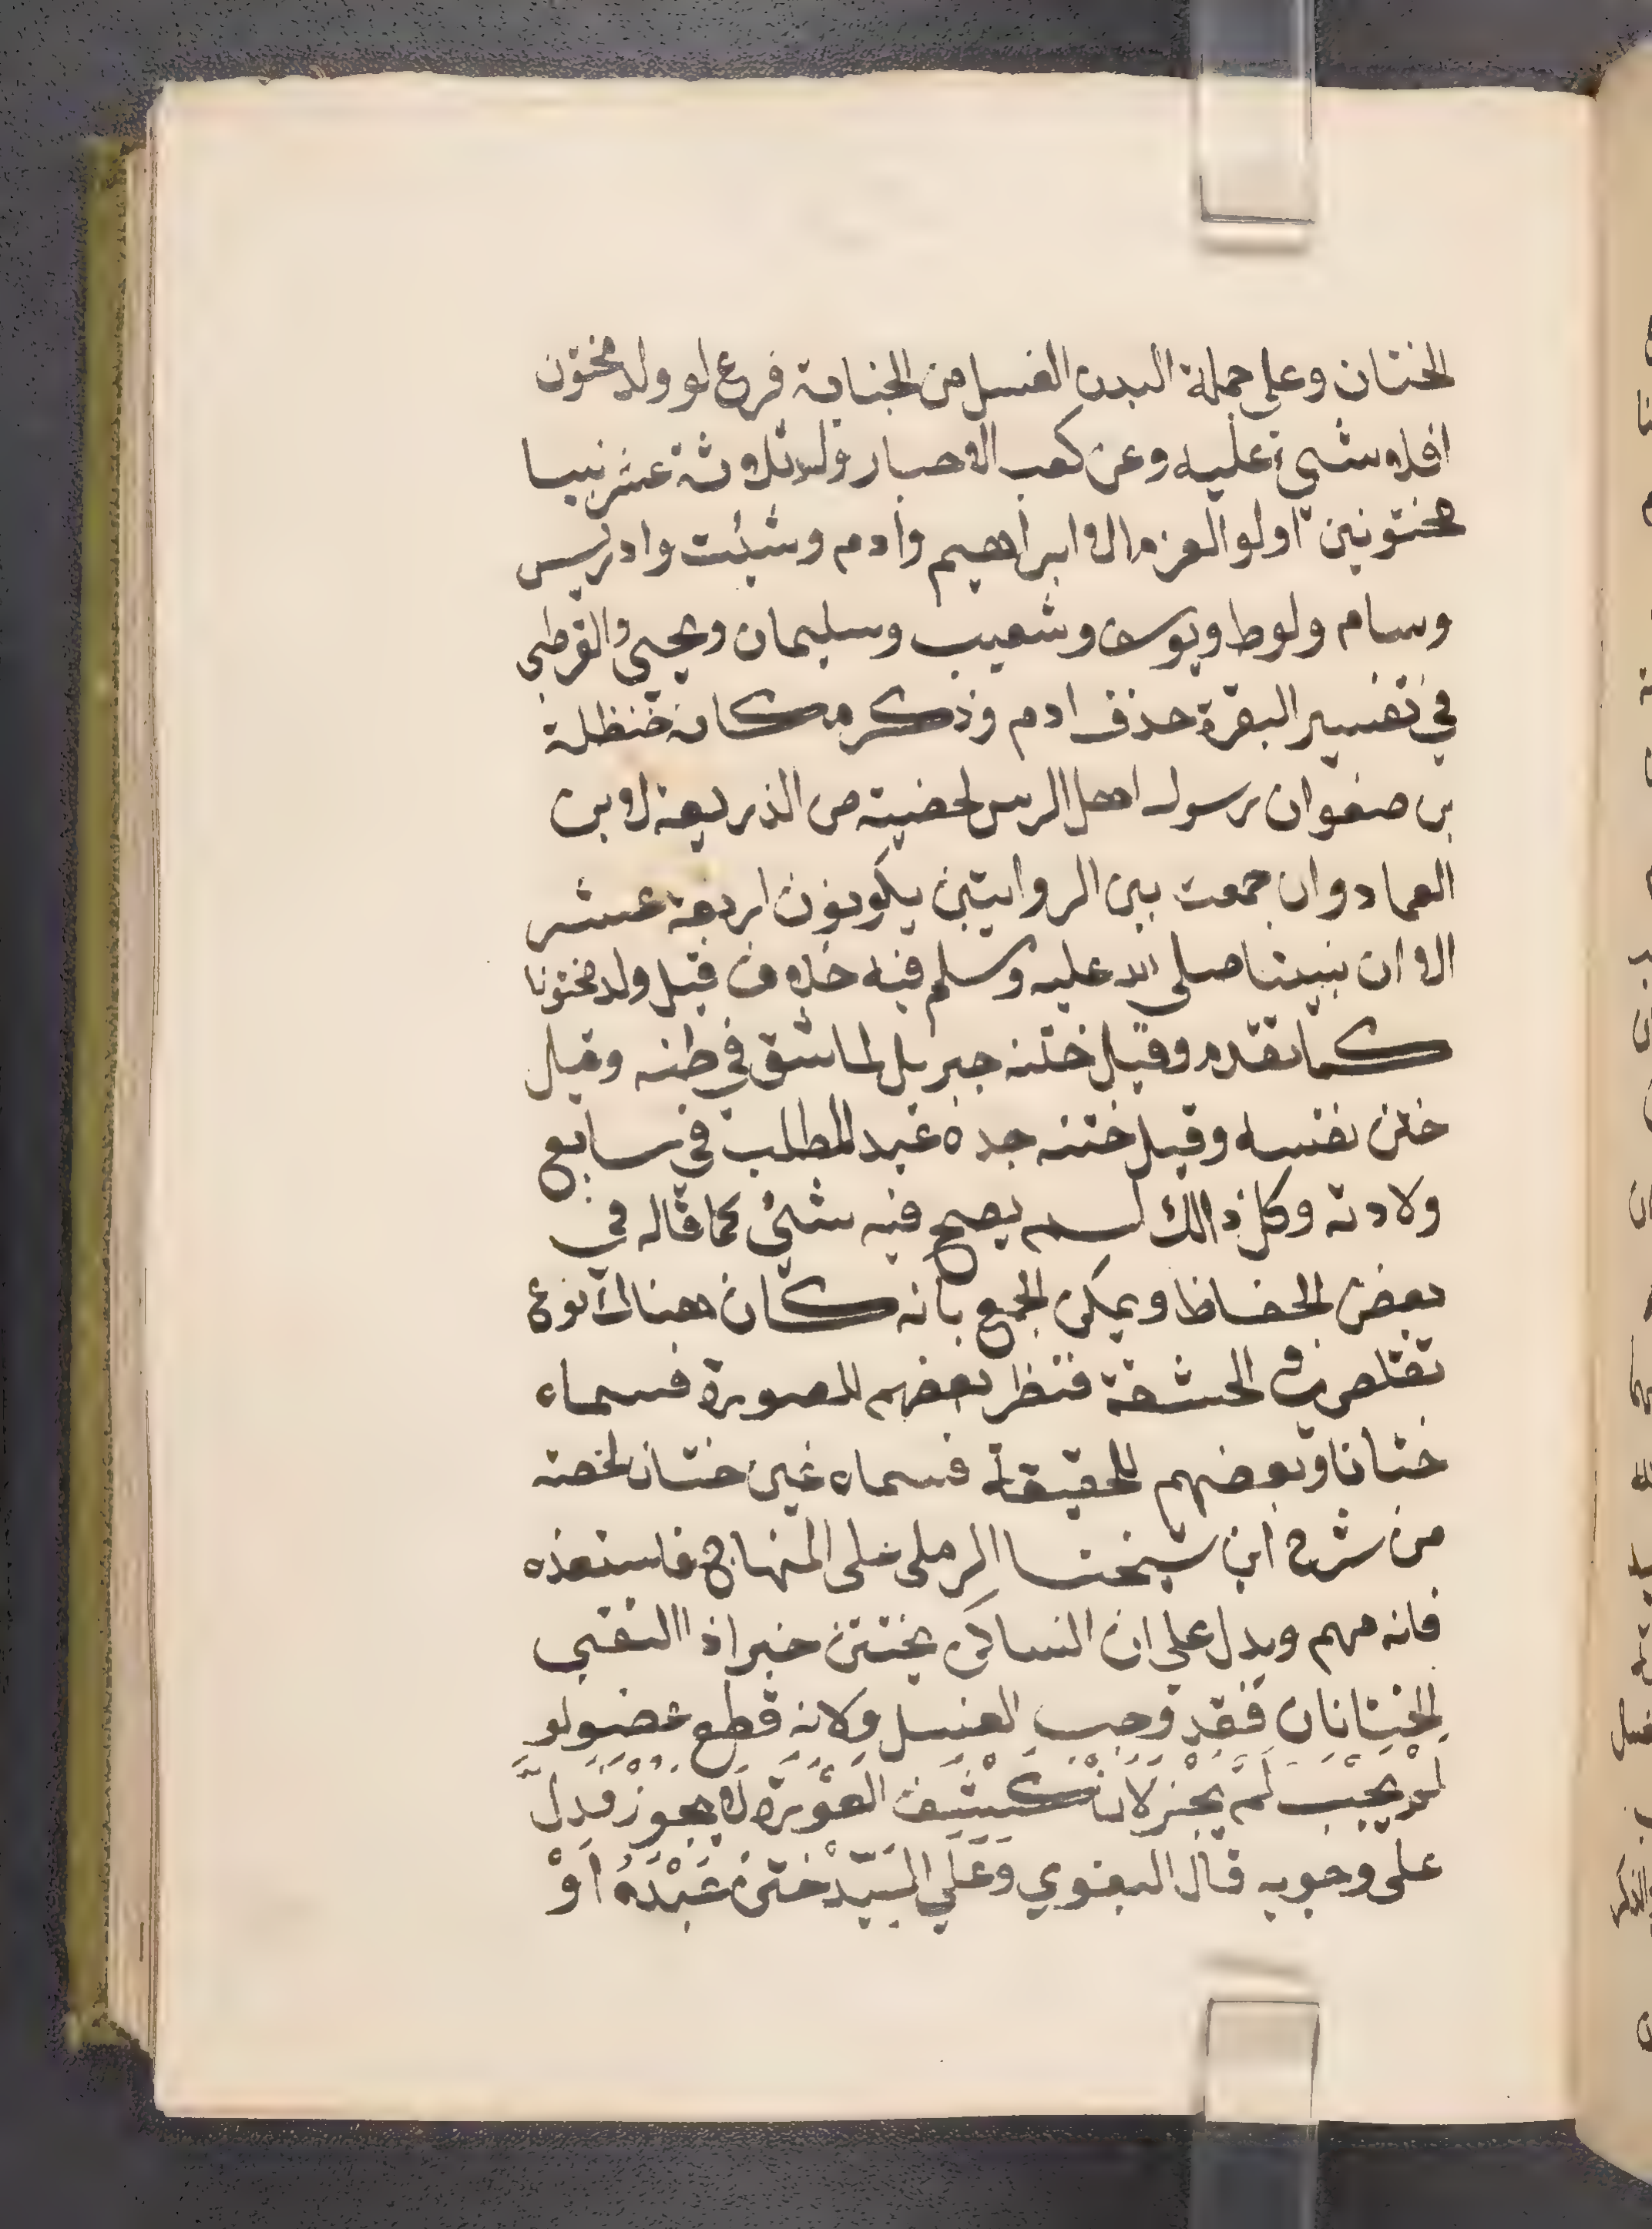 الختان وعلي جملة البدن الغسل من الجنابة فرع لو ولد مختون
افلا شيء عليه وعن كعب الاحبار ولد ثلاثة عشر نبيا
مختونين اولو العزم الا ابراهيم وادم وشيئت وادريس
وسام ولوط ويوسف وشعيب وسليمان ويحيي والقرطبي
في تفسير البقرة حذف ادم وذكر مكانه خنظلة
بن صفوان رسول اهل الرس لخصته من الذريعة لابن
العماد وان جمعت بين الروايتين يكونون اربعة عشر
الا ان نبينا صلي الله عليه وسلم فيه خلاف قيل ولد مختونا
كما تقدم وقيل ختنه جبريل لما شق في طنه وقيل
ختن نفسه وقيل ختنه جده عبد المطلب في سابع
ولادته وكل ذالك لم يصح فيه شئ كما قاله في
بعض الحفاظ ويمكن الجمع بانه كان هناك نوع
تقلص في الحشفة فنظر بعضهم للصورة فسماه
ختانا وبعضهم للحقيقة فسماه غير ختان لخصته
من شرح ابن شيخنا الرملي على المنهاج فاستفده
فانه مهم ويدل علي ان النسا كن يختتن خبر اذا التقي
الختانان فقد وجب الغسل ولانه قطع عضو لو
لم يجب لم يجز لان كشف العورة لا يجوز فدل
على وجوبه قال البغوي وعلي السيد ختن عبده او